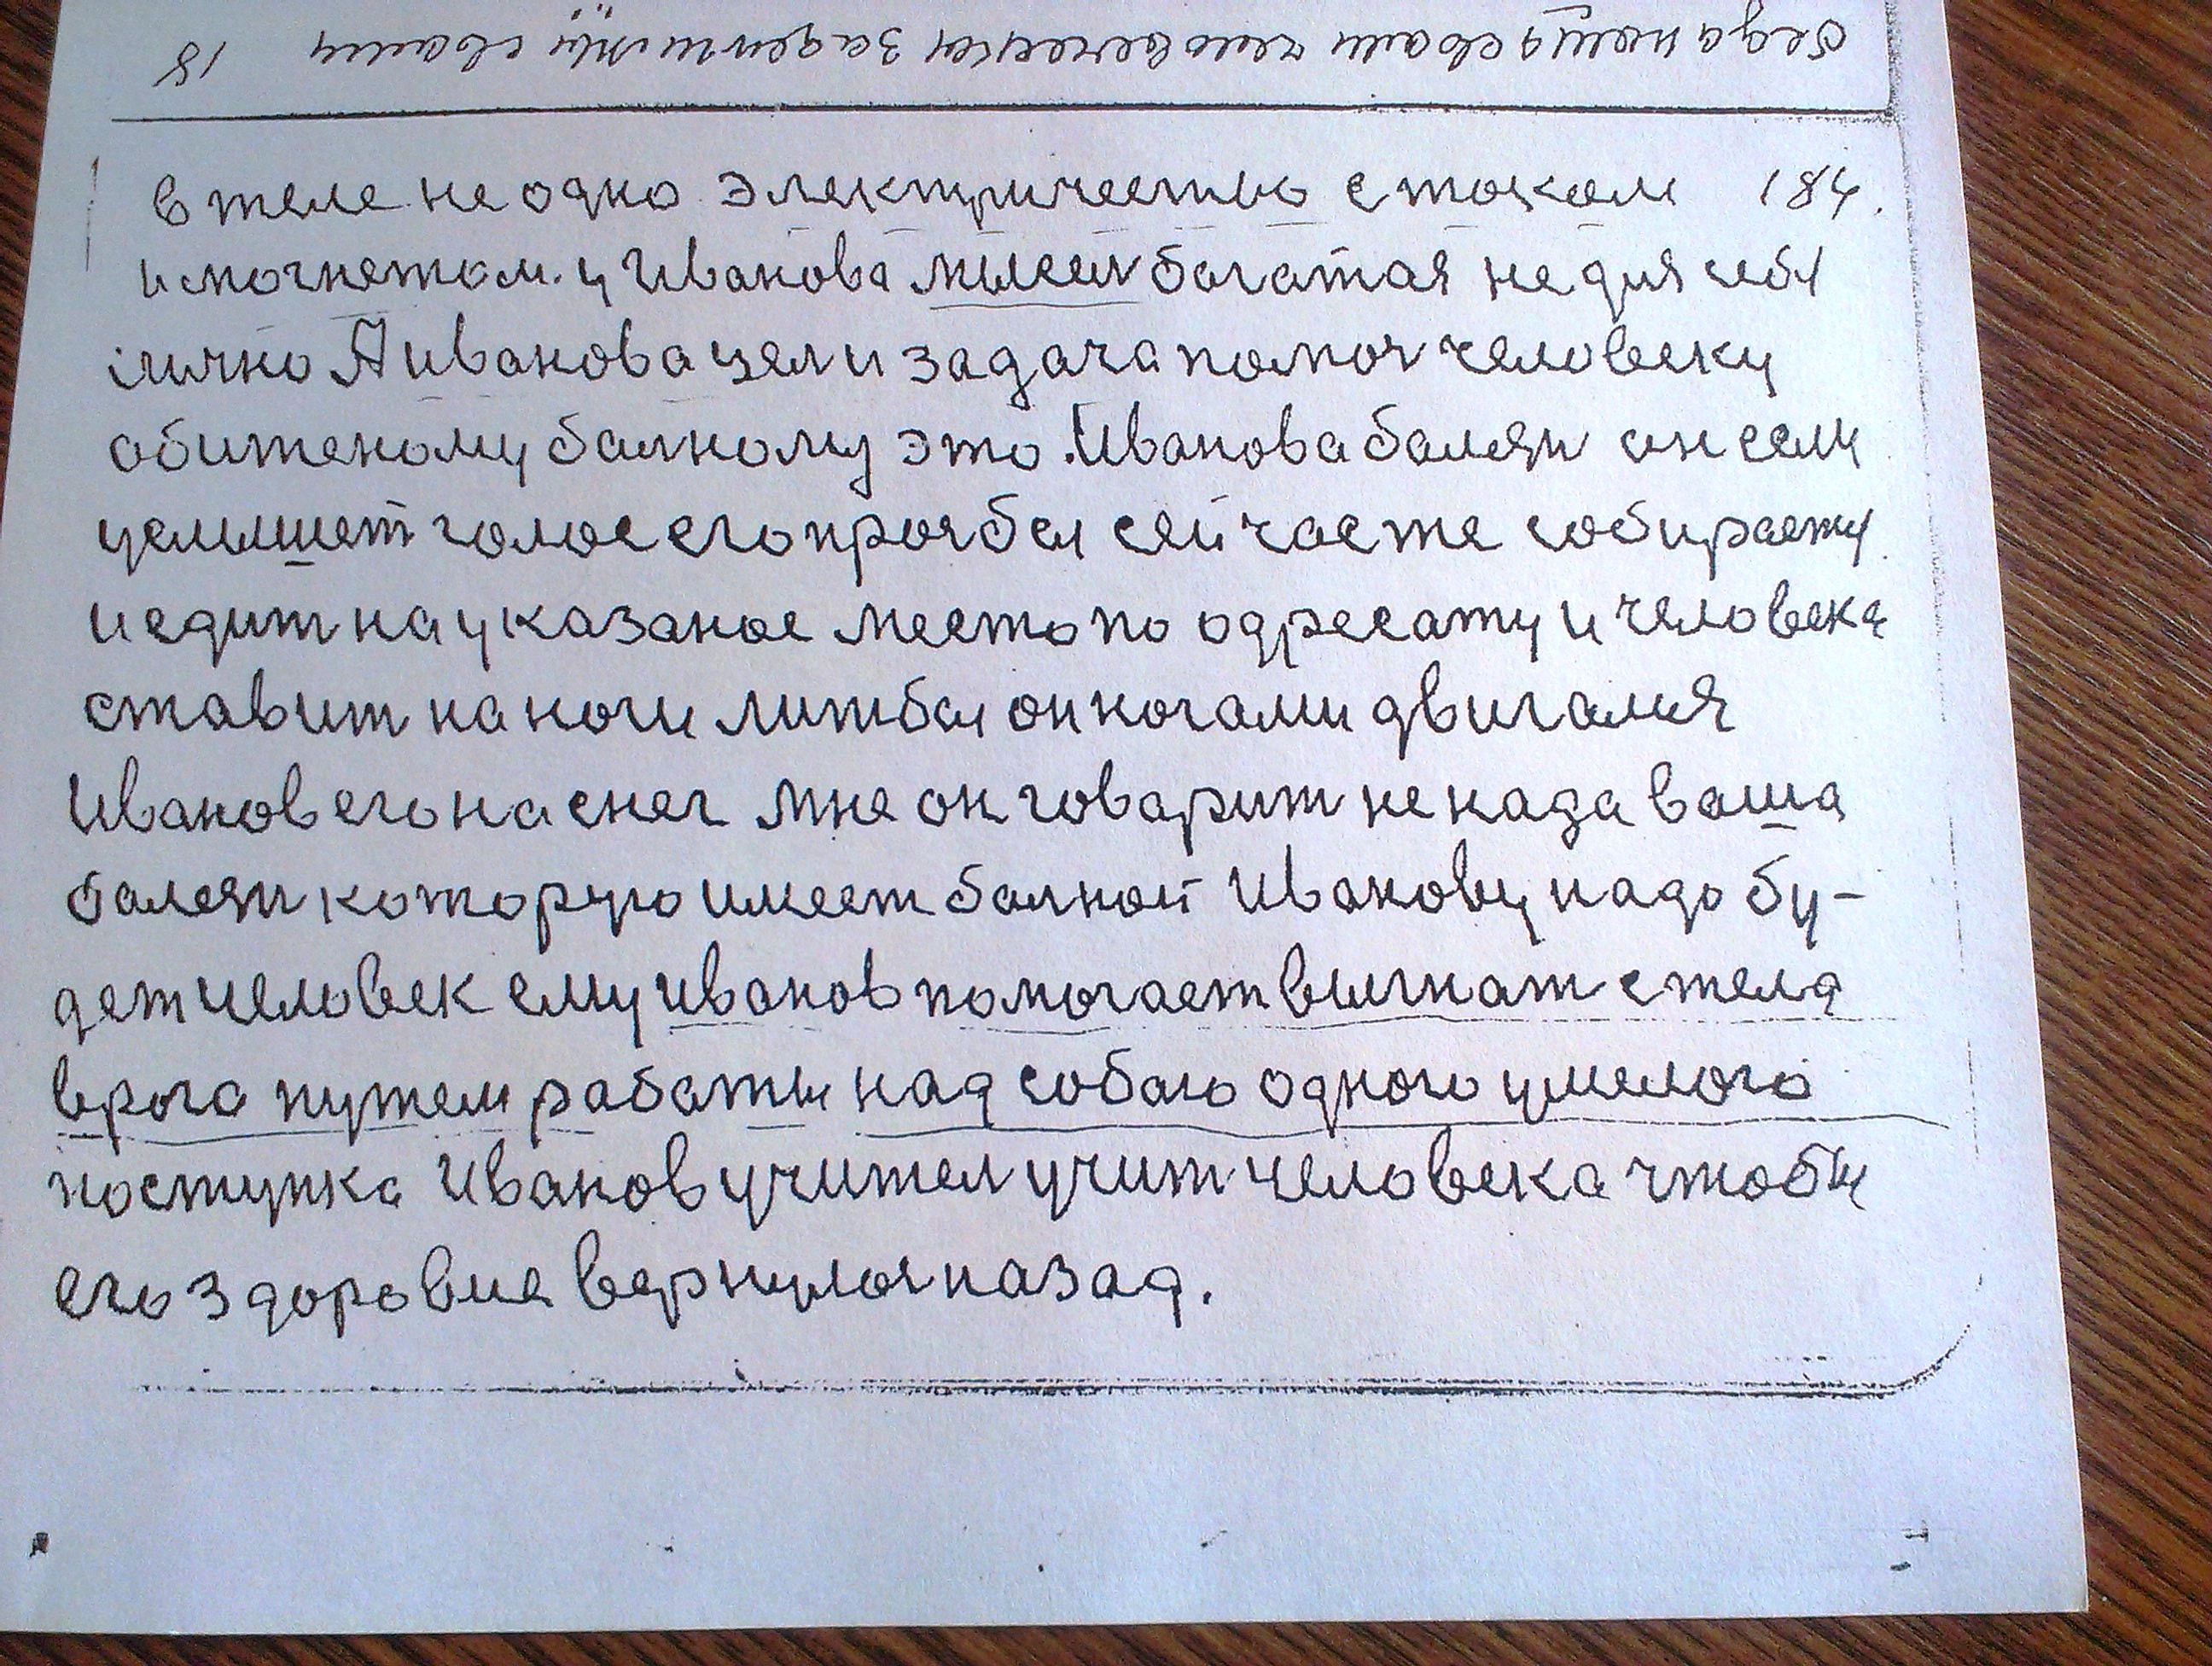 беда наша свали человечески за денижки свали 18
в теле не одно электричество с током 184.
и могнетом. у Иванова мысел богатая не для себя
лично А иванова цел и задача помоч человеку
обитеному балному это Иванова балезн он если
услышет голос его прозбы сейчас же собирается
и едит на указаное место по одресату и человека
ставит на ноги литбы он ногами двигался
Иванов его на снег мне он говарит не нада ваша
балезн которую имеет балной Иванову надо бу-
дет человек ему иванов помогает выгнат с тела
врага путем рабаты над собаю одного умелого
поступка Иванов учител учит человека чтобы
его здоровие вернулос назад.